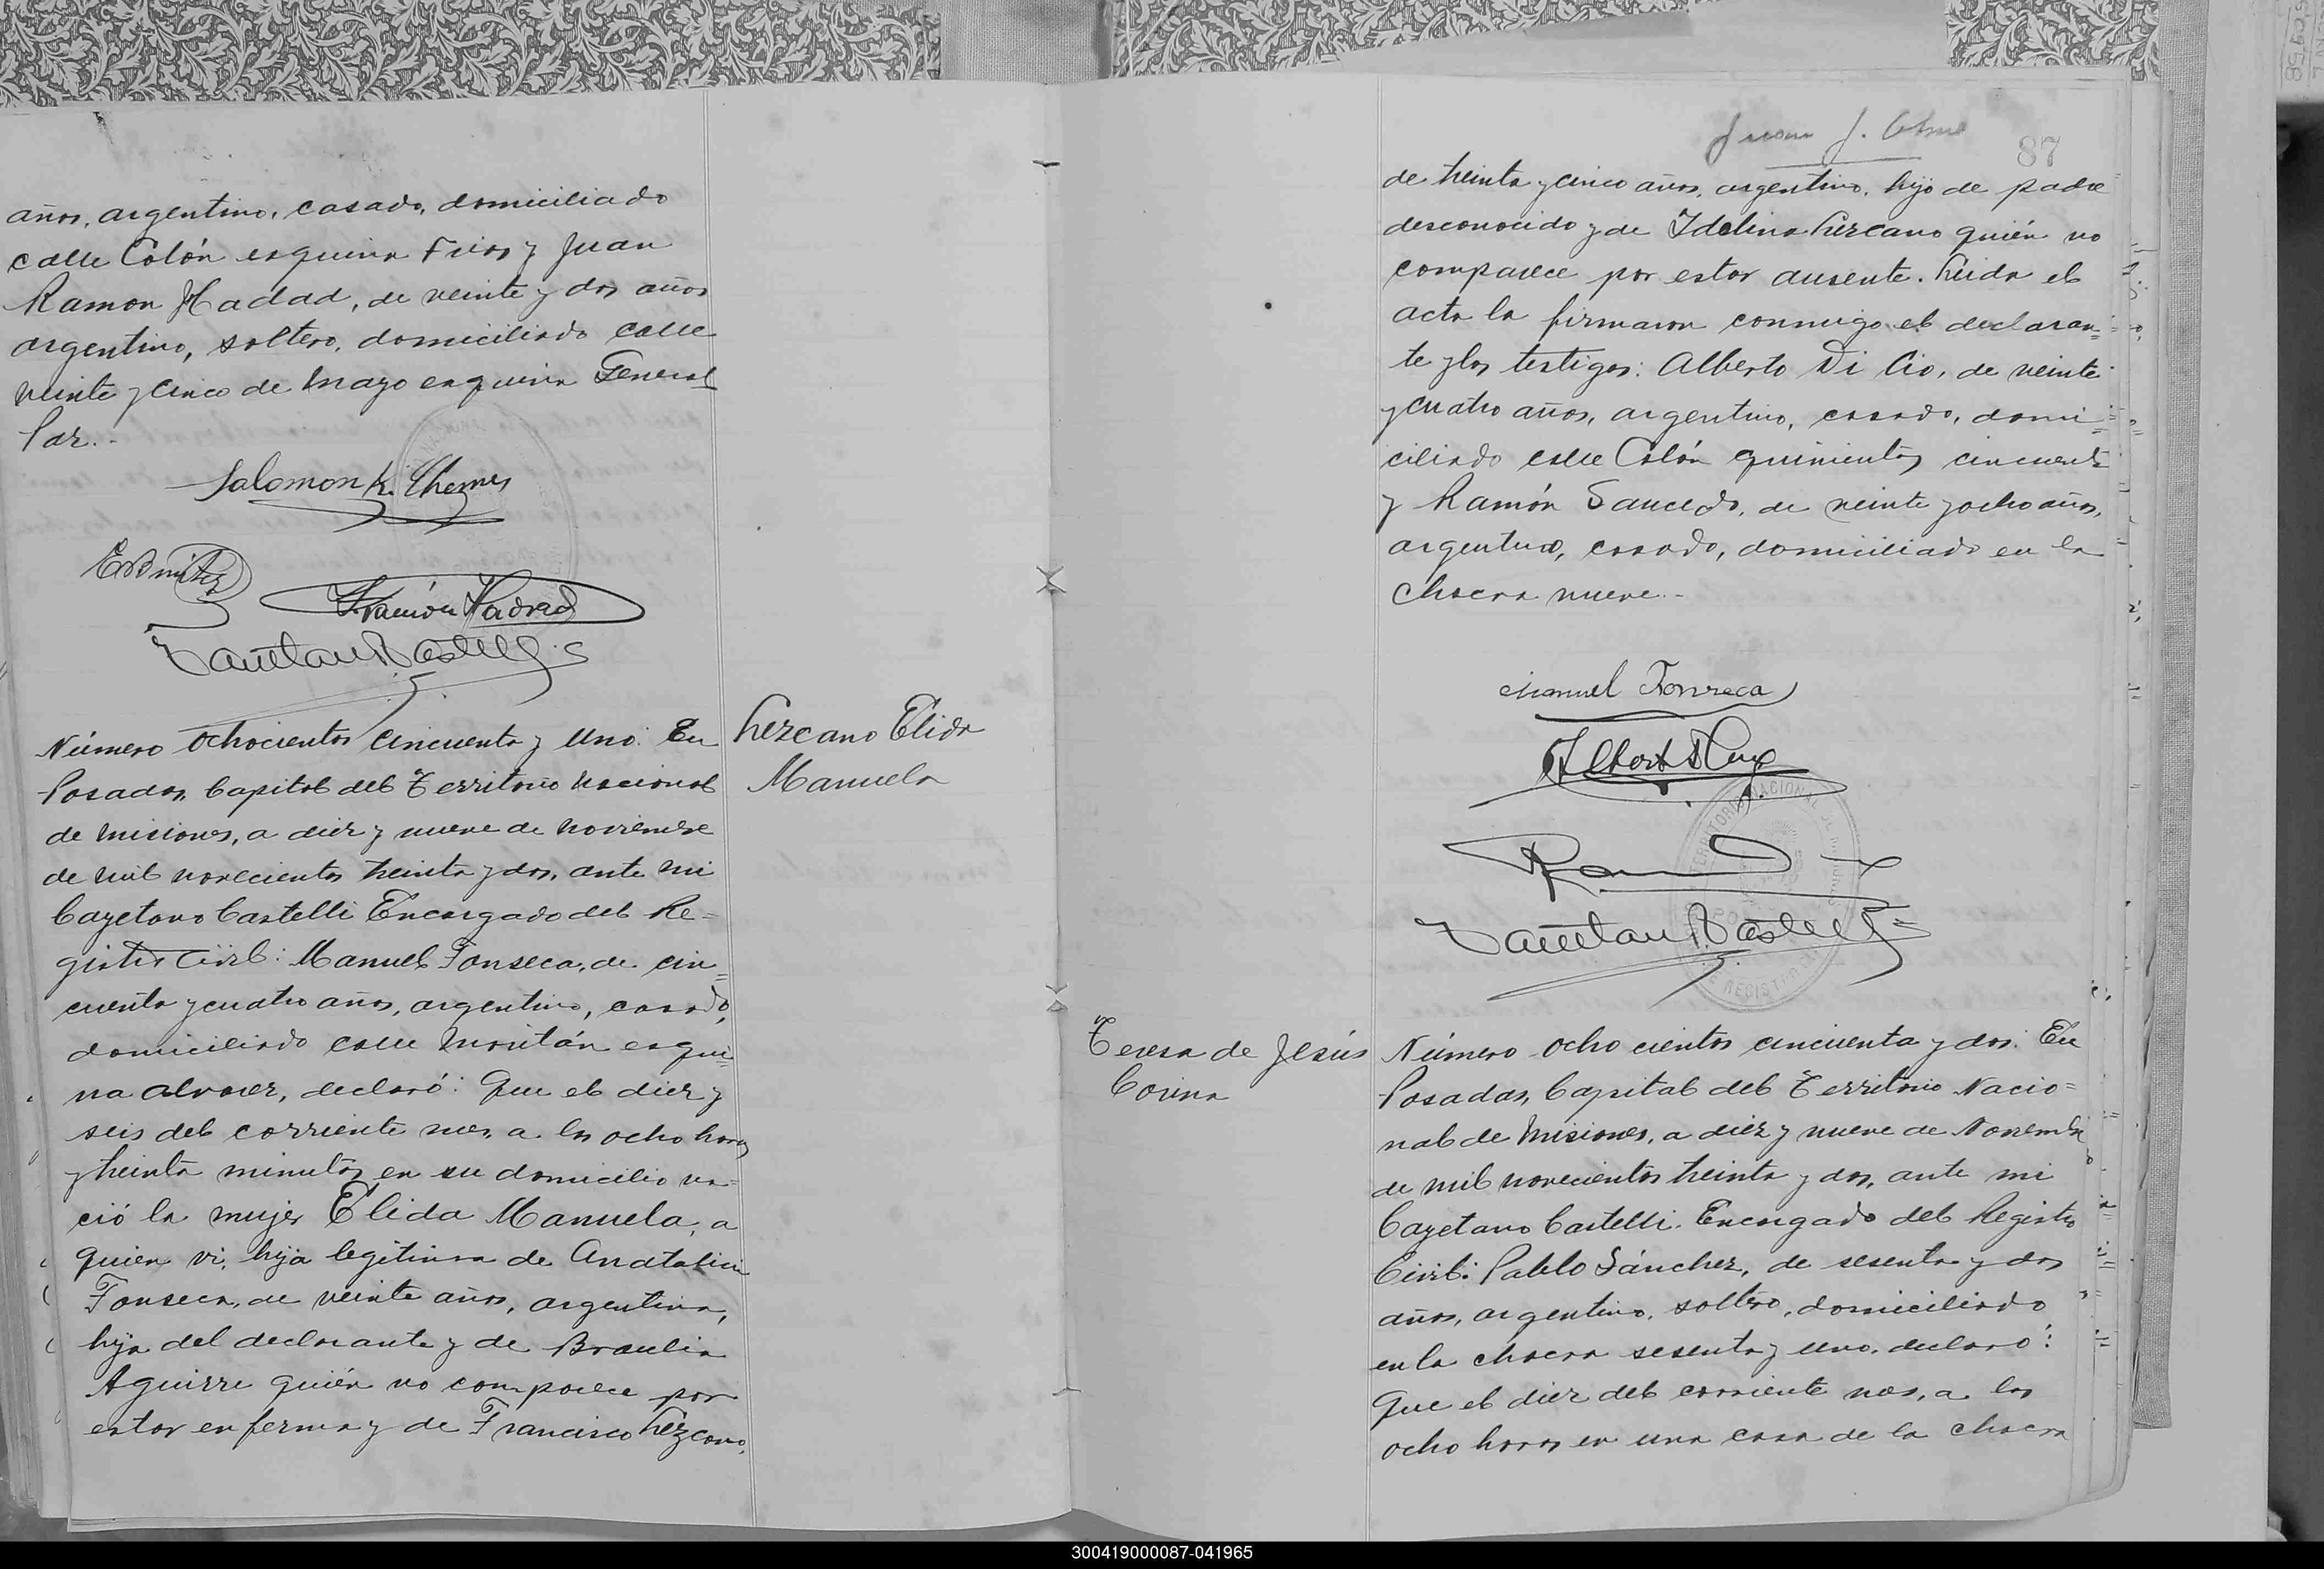 años, argentino, casado, domiciliado
calle Colón esquina Frias y Juan
Ramon Hadad, de veinte y dos años
argentino, soltero, domiciliado calle
veinte y cinco de Mayo esquina General
Paz.-
Salomon K.
Ramón Hadad
Número ochocientos cincuenta y uno: En
Posadas, Capital del Territorio Nacional
de Misiones, a diez y nueve de noviembre
de mil novecientos treinta y dos, ante mi
Cayetano Castelli Encargado del Re=
gistro Civil: Manuel Fonseca, de cin=
cuenta y cuatro años, argentino, casado,
domiciliado calle Montán esqui=
na Alvarez, declaró: Que el diez y
seis del corriente mes, a las ocho horas
y treinta minutos en su domicilio na=
ció la mujer Elida Manuela, a
quien vi, hija legítima de Anatalicia
Fonseca, de veinte años, argentina,
hija del declarante y de Braulia
Aguirre quién no comparece por
estar enferma y de Francisco Lezcano,
Lezcano Elida
Manuela
Juan J.
87
de treinta y cinco años, argentino, hijo de padre
desconocido y de Idelina Lezcano quién no
comparece por estar ausente. Leida el
acta la firmaron conmigo el declaran=
te y los testigos: Alberto Di Cio, de veinte
y cuatro años, argentino, casado, domi=
ciliado calle Colón quinientos cincuenta
y Ramón Saucedo, de veinte y ocho años,
argentino, casado, domiciliado en la
chacra nueve.-
Manuel Fonseca
TERRITORIO NACIONAL DE MISIONES
REGISTRO
Teresa de Jesús
Corina
Número ochocientos cincuenta y dos: En
Posadas, Capital del Territorio Nacio=
nal de Misiones, a diez y nueve de Noviembre
de mil novecientos treinta y dos, ante mi
Cayetano Castelli. Encargado del Registro
Civil: Pablo Sánchez, de sesenta y dos
años, argentino, soltero, domiciliado
en la chacra sesenta y uno, declaró:
Que el diez del corriente mes, a las
ocho horas en una casa de la chacra
300419000087-041965